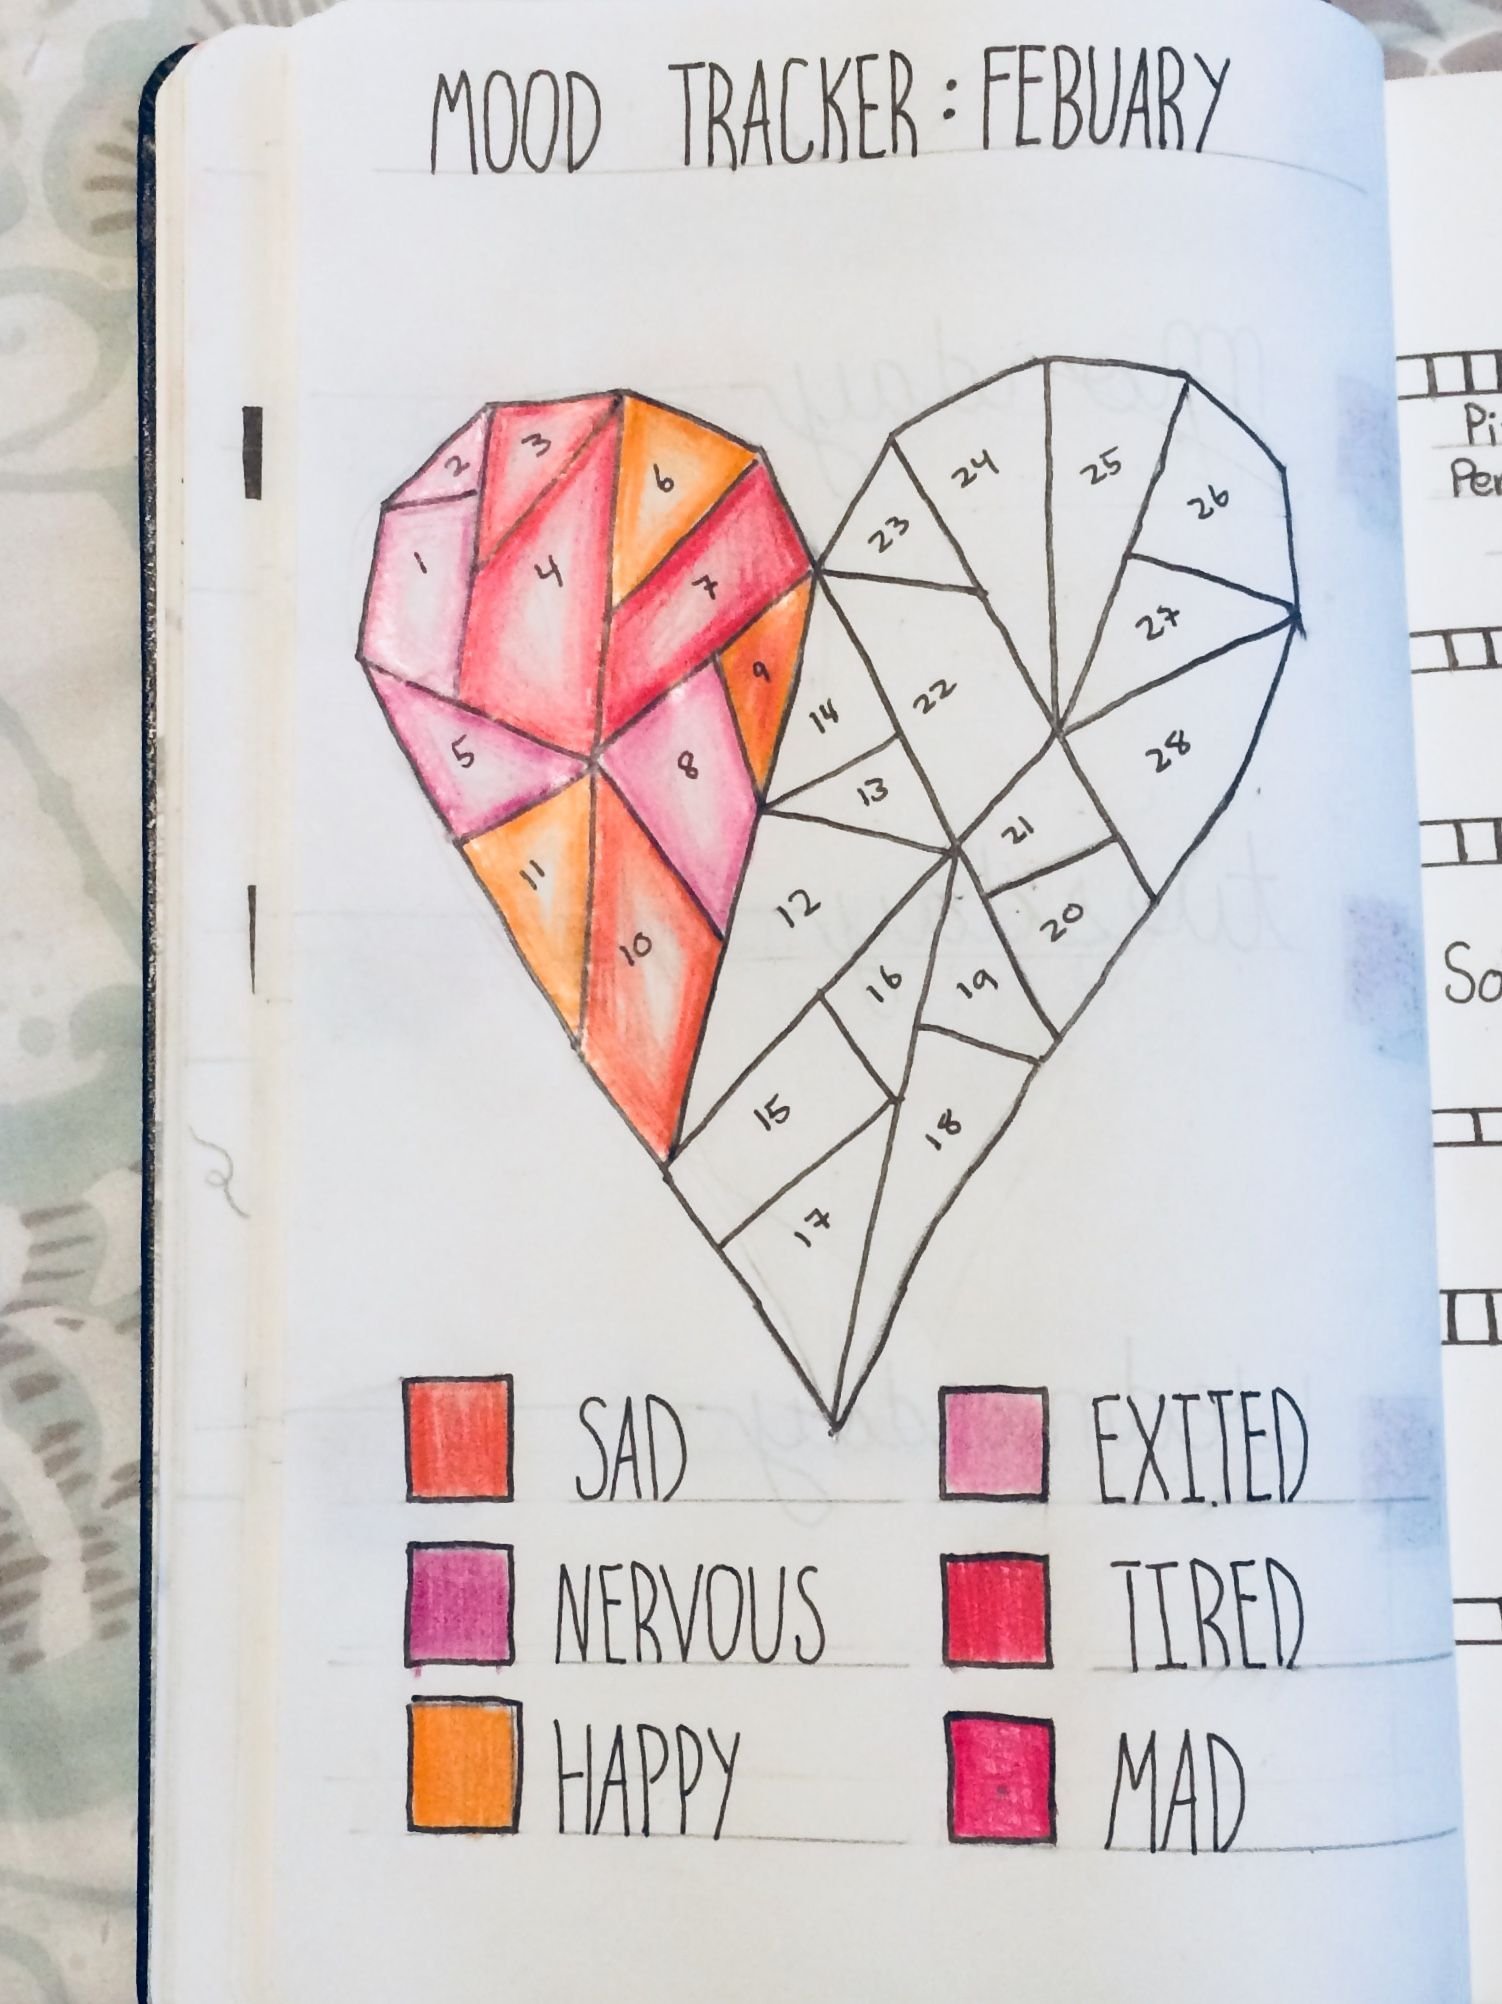 MOOD TRACKER: FEBUARY
2 3 6
1 4 7
5 8 9
11 10
24 25 26
23 27
14 22 28
13 21
12 20
16 19
15 18
17
SAD EXITED
NERVOUS TIRED
HAPPY MAD